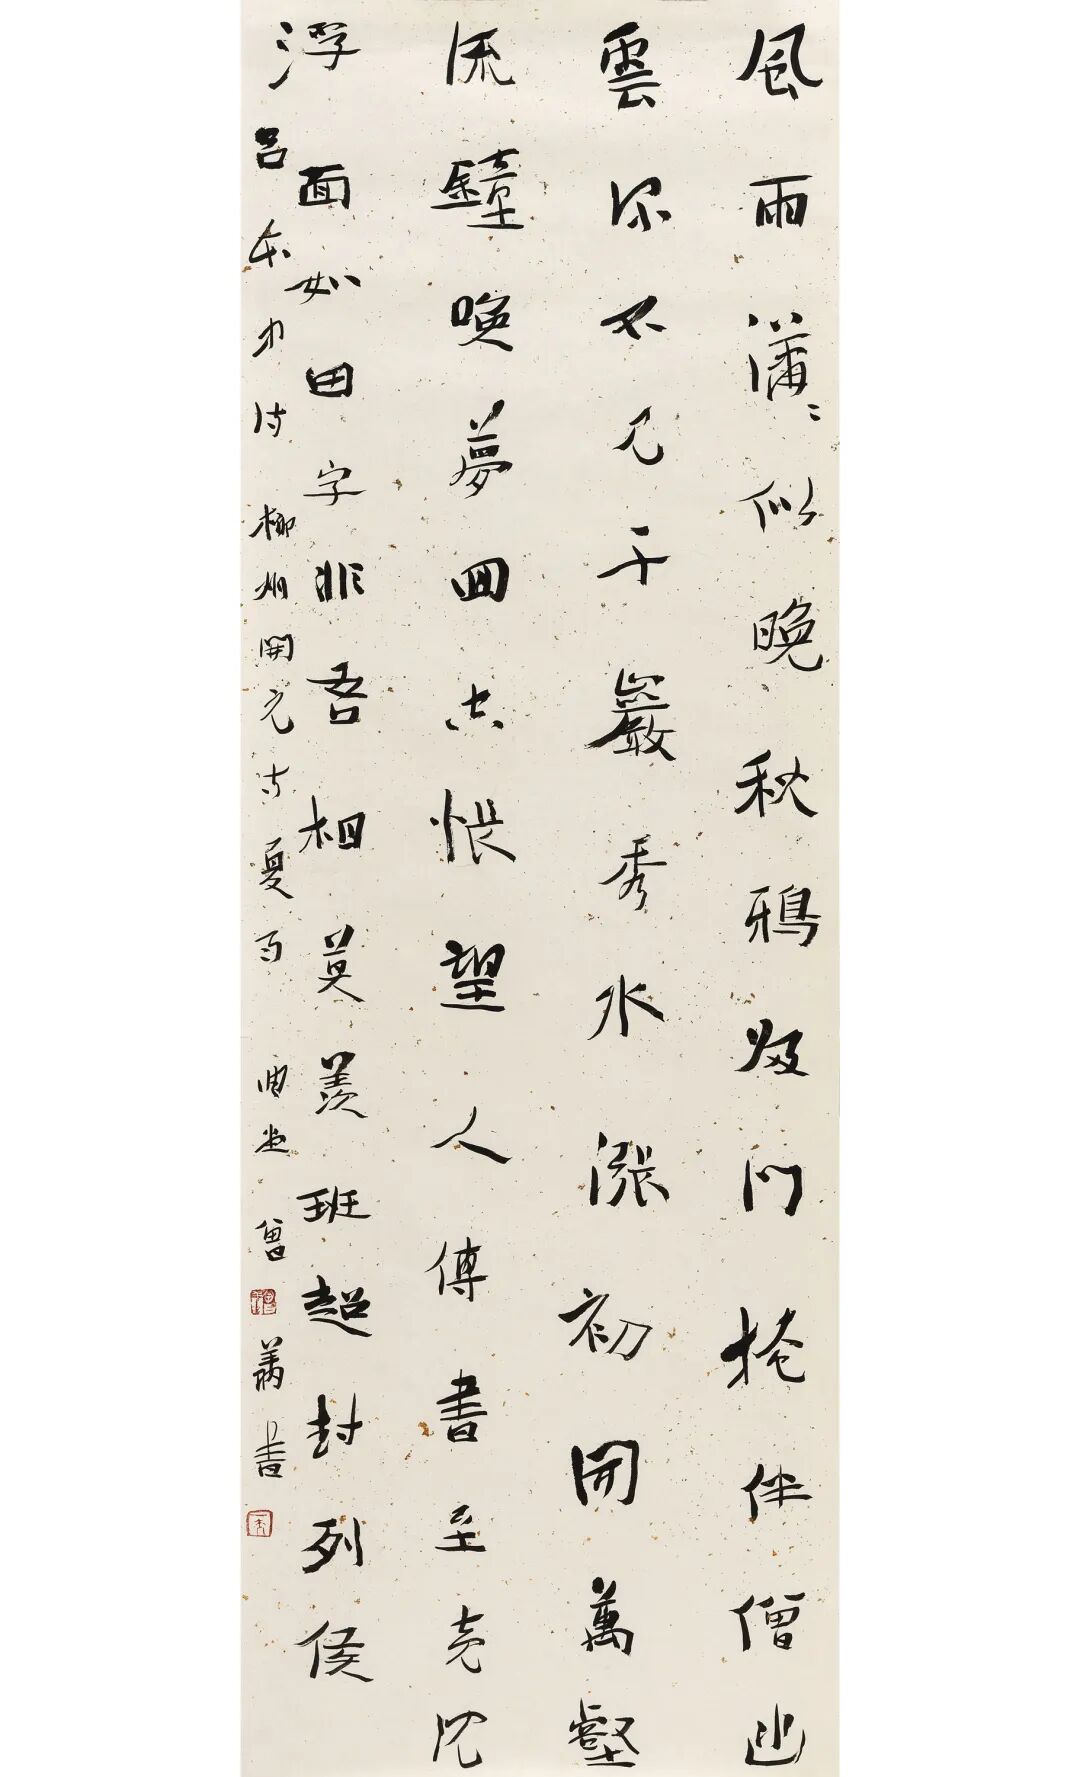 風雨瀟〻似晚秋鴉歸門掩伴僧幽
雲深不見千巖秀水漲初聞萬壑
流鐘喚夢回空悵望人傳書至竟沈
浮面如田字非吾相莫羨班超封列侯
呂本中詩柳州開元寺夏雨 曾 書